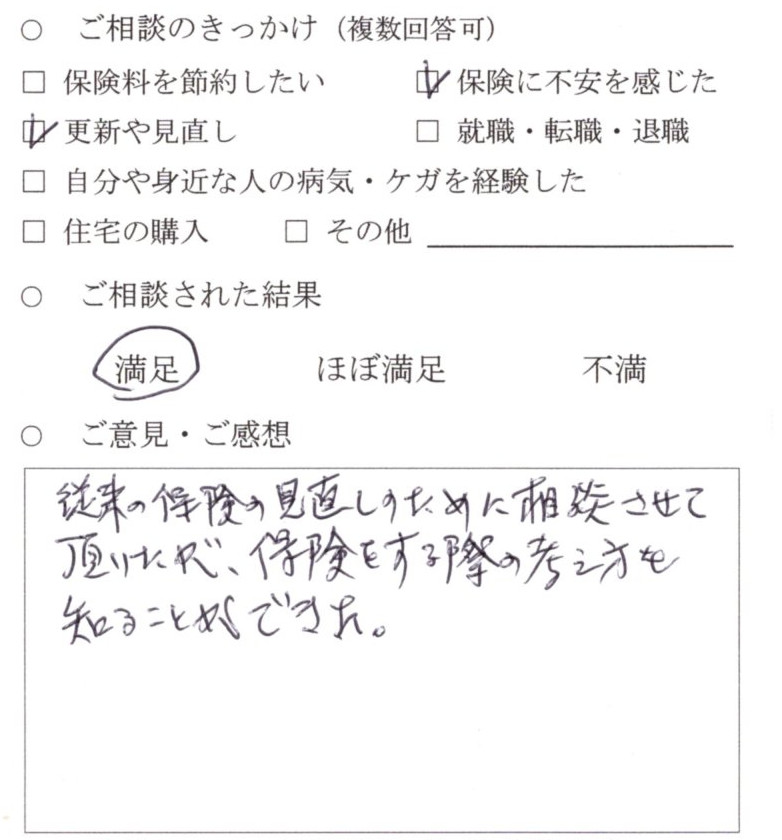 ○ ご相談のきっかけ（複数回答可）
□ 保険料を節約したい ☑ 保険に不安を感じた
☑ 更新や見直し □ 就職・転職・退職
□ 自分や身近な人の病気・ケガを経験した
□ 住宅の購入 □ その他
○ ご相談された結果
満足 ほぼ満足 不満
○ ご意見・ご感想
従来の保険の見直しのために相談させて
頂けたが、保険をする際の考え方を
知ることができた。